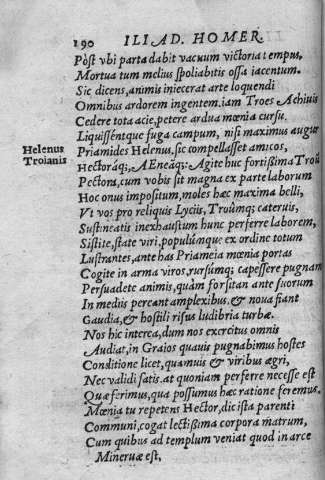 190 ILIAD. HOMER.
Pòst vbi parta dabit vacuum victoria tempus,
Mortua tum melius spoliabitis ossa iacentum.
Sic dicens, animis iniecerat arte loquendi
Omnibus ardorem ingentem. iam Troes Achiuis
Cedere tota acie, petere ardua mœnia cursu.
Liquissentque fuga campum, ni maximus augur
Helenus Troianis
Priamides Helenus, sic compellasset amicos,
Hectoráq;, AEneāq;: Agite huc fortissima Troū
Pectora, cum vobis sit magna ex parte laborum
Hoc onus impositum, moles hæc maxima belli,
Vt vos pro reliquis Lyciis, Troûmq; cateruis,
Sustineatis inexhaustum hunc perferre laborem,
Sistite, state viri, populúmque ex ordine totum
Lustrantes, ante has Priameia mœnia portas
Cogite in arma viros, rursúmq; capessere pugnam
Persuadete animis, quàm forsitan ante suorum
In mediis pereant amplexibus, & noua fiant
Gaudia, & hostili risus ludibria turbæ.
Nos hic interea, dum nos exercitus omnis
Audiat, in Graios quauis pugnabimus hostes
Conditione licet, quamuis & viribus ægri,
Nec validi satis. at quoniam perferre necesse est
Quæ ferimus, qua possumus hæc ratione feremus.
Mœnia tu repetens Hector, dic ista parenti
Communi, cogat lectissima corpora matrum,
Cum quibus ad templum veniat quod in arce
Mineruæ est,